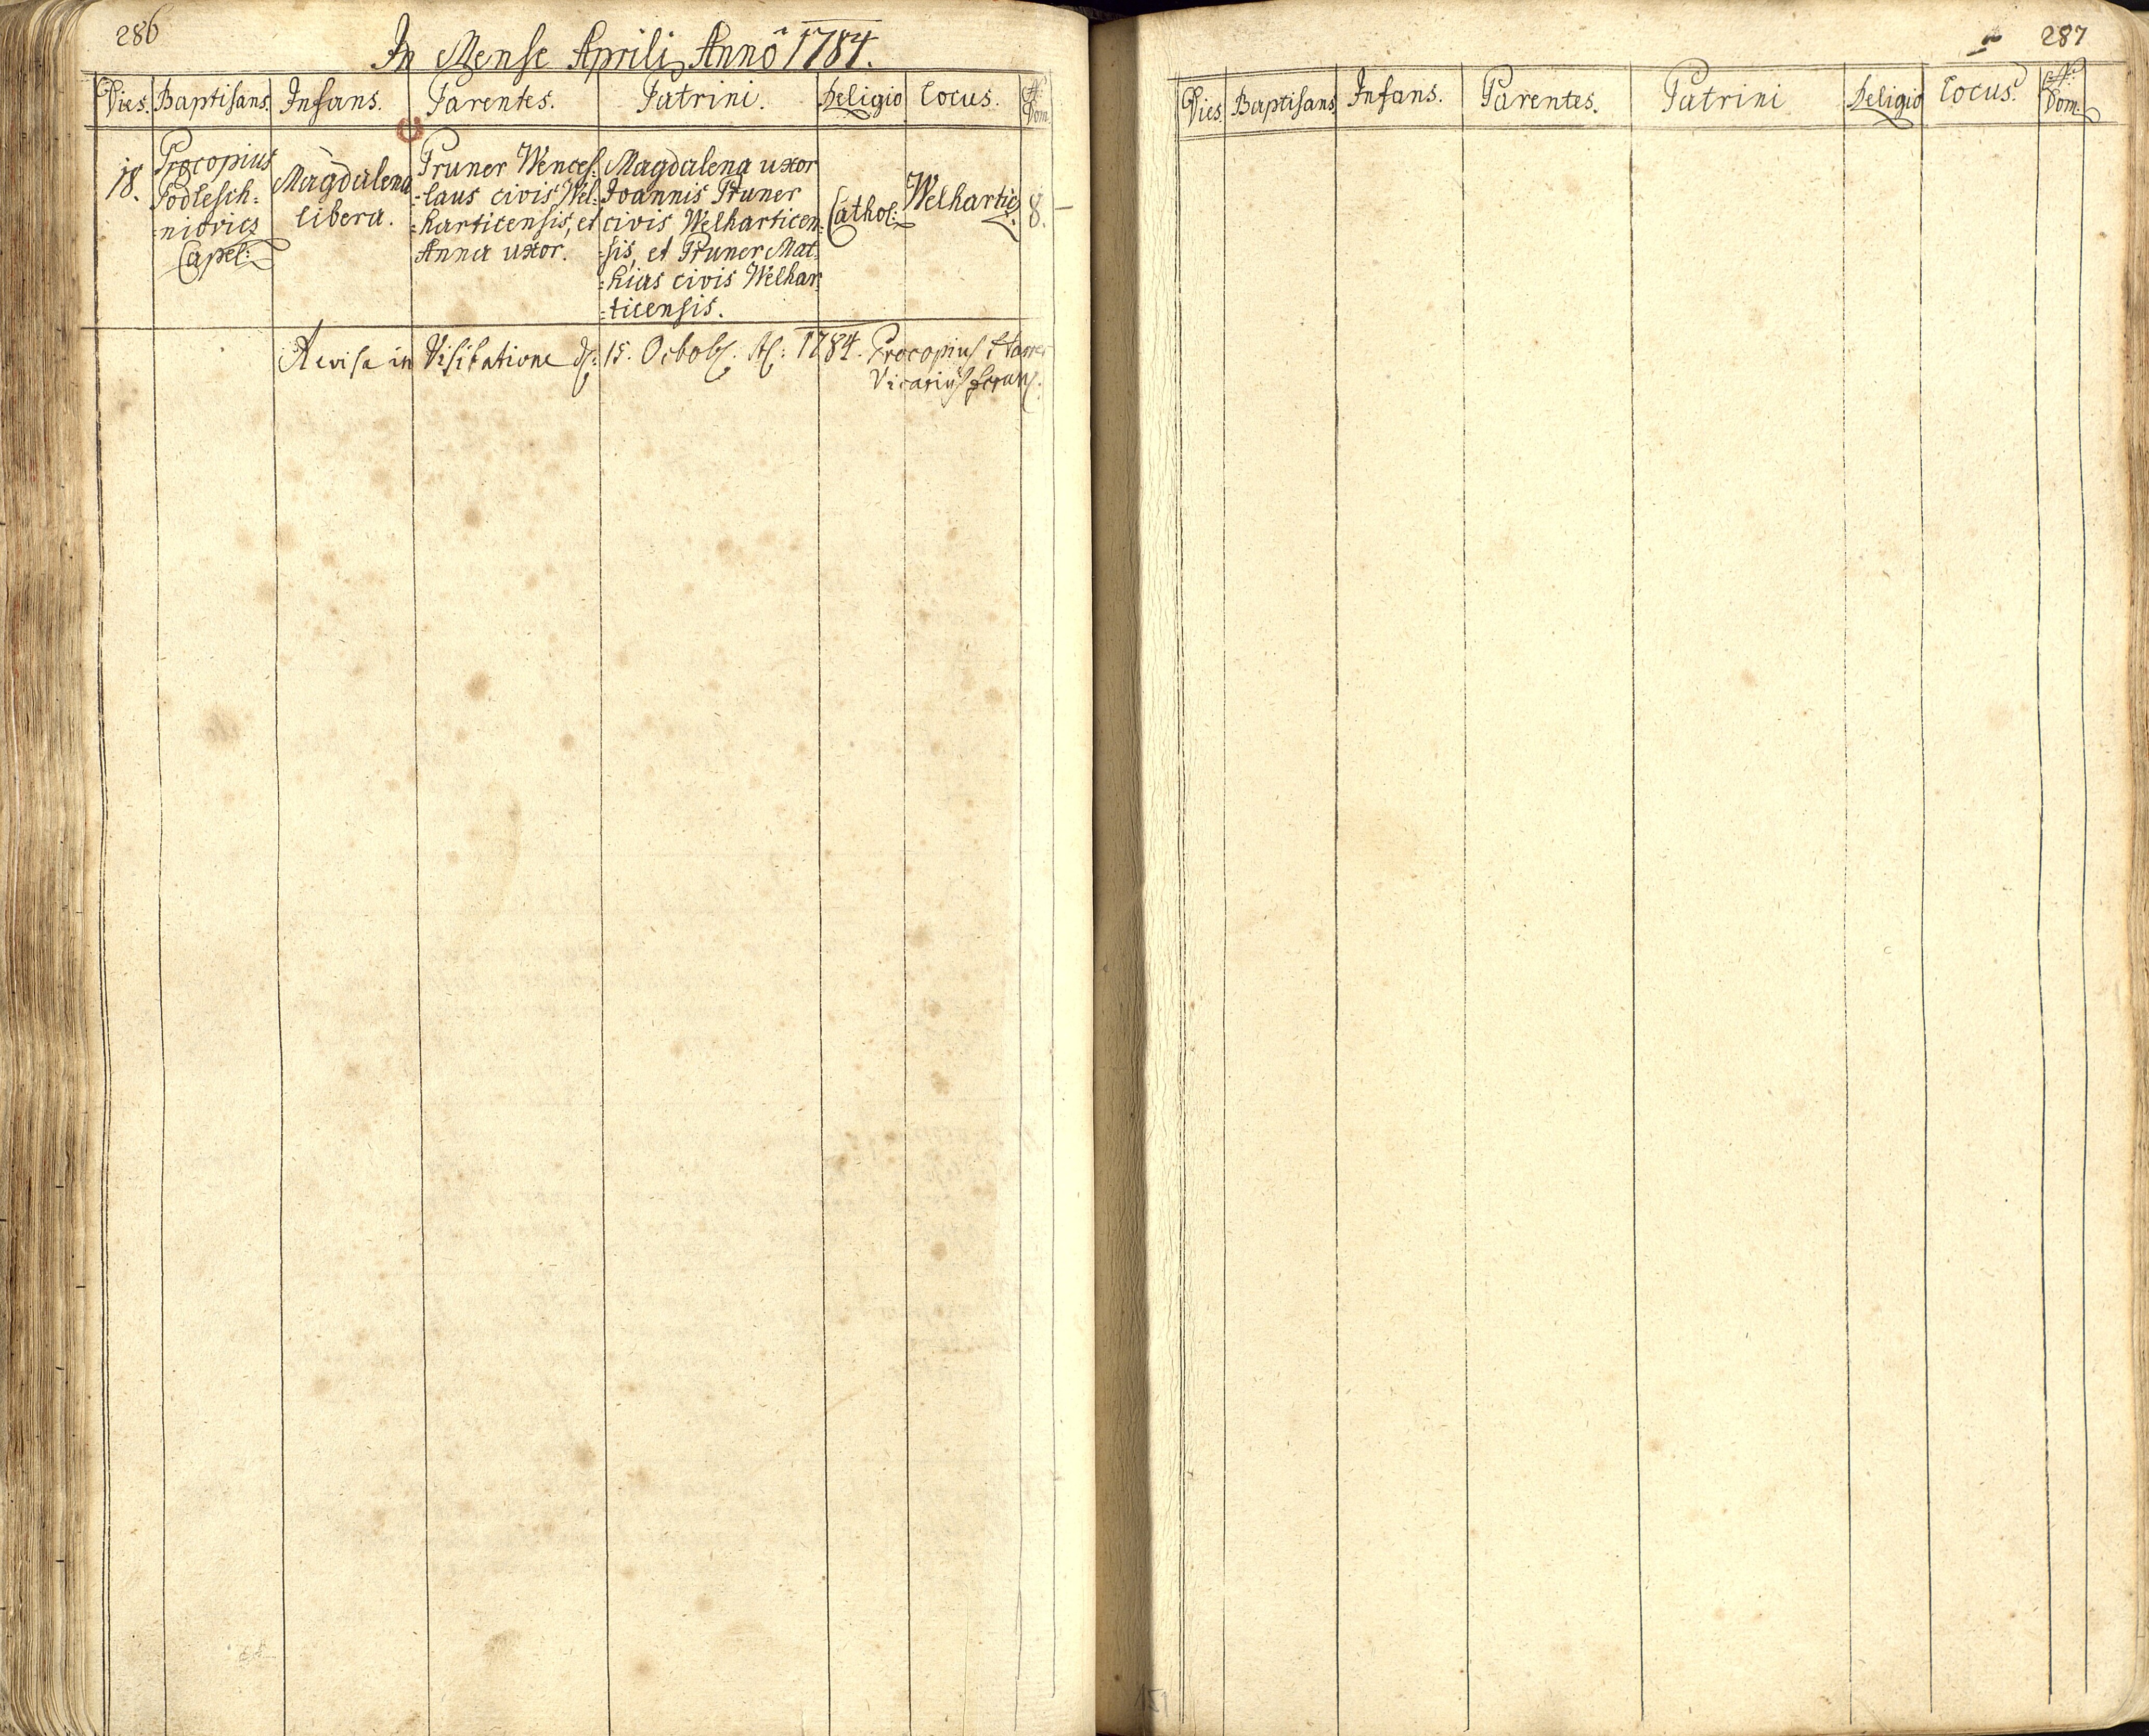 286
In Mense Aprili Anno 1784.
Dies. Baptisans. Infans. Parentes. Patrini. Religio Locus. N: Dom.
18.
Procopius
Podlesch=
=niovicz
Capel:
Magdalena
libera.
Pruner Wences=
=laus civis Wel=
=harticensis, et
Anna uxor.
Magdalena uxor
Joannis Pruner
civis Welharticen=
=sis, et Pruner Mat=
=hias civis Welhar=
=ticensis.
Cathol:
Welhartic
8.
Revisa in Visitatione d: 15. Octob: A: 1784. Procopius
Vicarius
287
Dies. Baptisans. Infans. Parentes. Patrini Religio Locus. N: Dom.
151